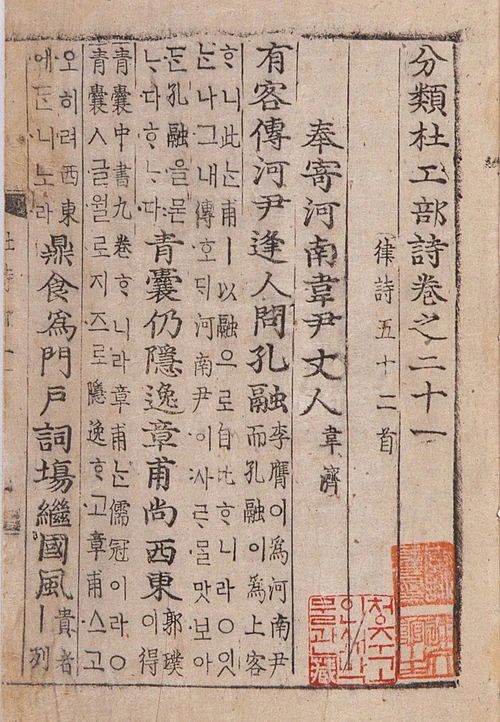 分類杜工部詩卷之二十一
律詩五十二首
奉寄河南韋尹丈人 韋濟
有客傳河尹逢人問孔融 李膺이爲河南尹
而孔融이爲上客
ᄒᆞ니此ᄂᆞᆫ甫ㅣ以融으로自比ᄒᆞ니라○잇
ᄂᆞᆫ나그내傳호ᄃᆡ河南尹이사ᄅᆞᄆᆞᆯ맛보아
ᄃᆞᆫ孔融을묻
ᄂᆞ다ᄒᆞᄂᆞ다
青囊仍隱逸章甫尚西東 郭璞
이得
青囊中書九卷ᄒᆞ니라章甫ᄂᆞᆫ儒冠이라○
青囊ㅅ글월로지즈로隱逸ᄒᆞ고章甫스고
오히려西東
에ᄃᆞᆫ니노라
鼎食爲門戶詞場繼國風 貴者
ㅣ列
청주고
인쇄박
물관藏